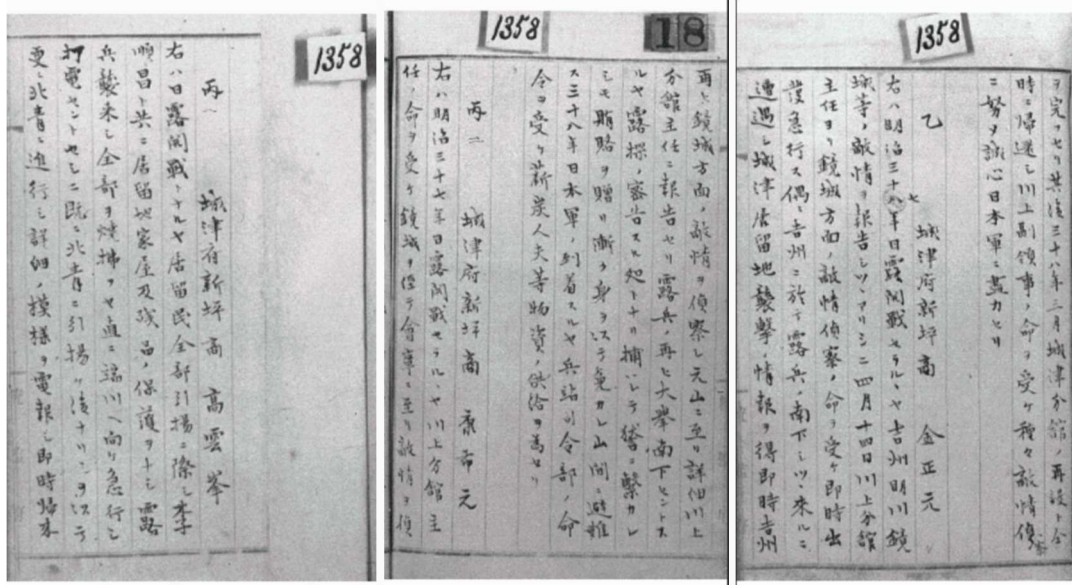 1358
ヲ完フセリ其後三十八年三月城津分館ノ再設ト仝
時ニ帰還シ川上副領事ノ命ヲ受ケ種々敵情偵察
ニ努メ誠心日本軍ニ盡力セリ
乙 城津府新坪商 金正元
右ハ明治三十七年日露開戰セラルヽヤ吉州明川鏡
城等ノ敵情ヲ報告シツヽアリシニ四月十四日川上分館
主任ヨリ鏡城方面ノ敵情偵察ノ命ヲ受ケ即時出
發急行ス偶々吉州ニ於テ露兵ノ南下シツヽ来ルニ
遭遇シ城津居留地襲擊ノ情報ヲ得即時吉州
18
1358
再ヒ鏡城方面ノ敵情ヲ偵察シ元山ニ至リ詳細川上
分館主任ニ報告セリ露兵ノ再ヒ大擧南下セントス
ルヤ露探ノ密告スル処トナリ捕ヘレテ獄ニ繫カレ
シモ賄賂ヲ贈リ漸ク身ヲ以テ免カレ山間ニ避難
ス三十八年日本軍ノ到着スルヤ兵站司令部ノ命
令ヲ受ケ薪炭人夫等物資ノ供給ヲ為セリ
丙二 城津府新坪商 元
右ハ明治三十七年日露開戰セラルヽヤ川上分館主
任ノ命ヲ受ケ鏡城ヲ経テ會寧ニ至リ敵情ヲ偵
1358
丙一 城津府新坪商 高雲峯
右ハ日露開戰トナルヤ居留民全部引揚ニ際シ李
順昌ト共ニ居留地家屋及残品ノ保護ヲナシ露
兵襲来シ全部ヲ燒拂フヤ直ニ端川ヘ向ケ急行シ
打電セントセシニ既ニ北青ニ引揚ケ後ナリシヲ以テ
更ニ北青ニ進行シ詳細ノ模様ヲ電報シ即時帰来